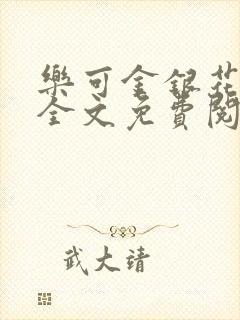 樂可金銀花
全文免費閱
武大靖